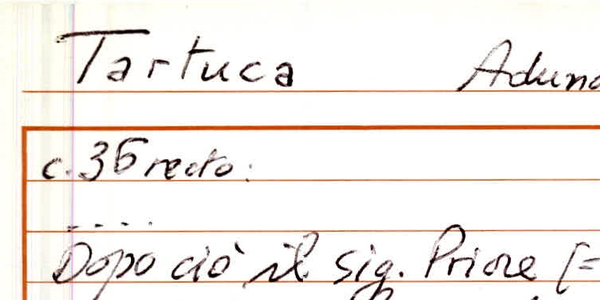 Tartuca Aduna
c. 36 recto:
....
Dopo ciò il sig. Priore [=